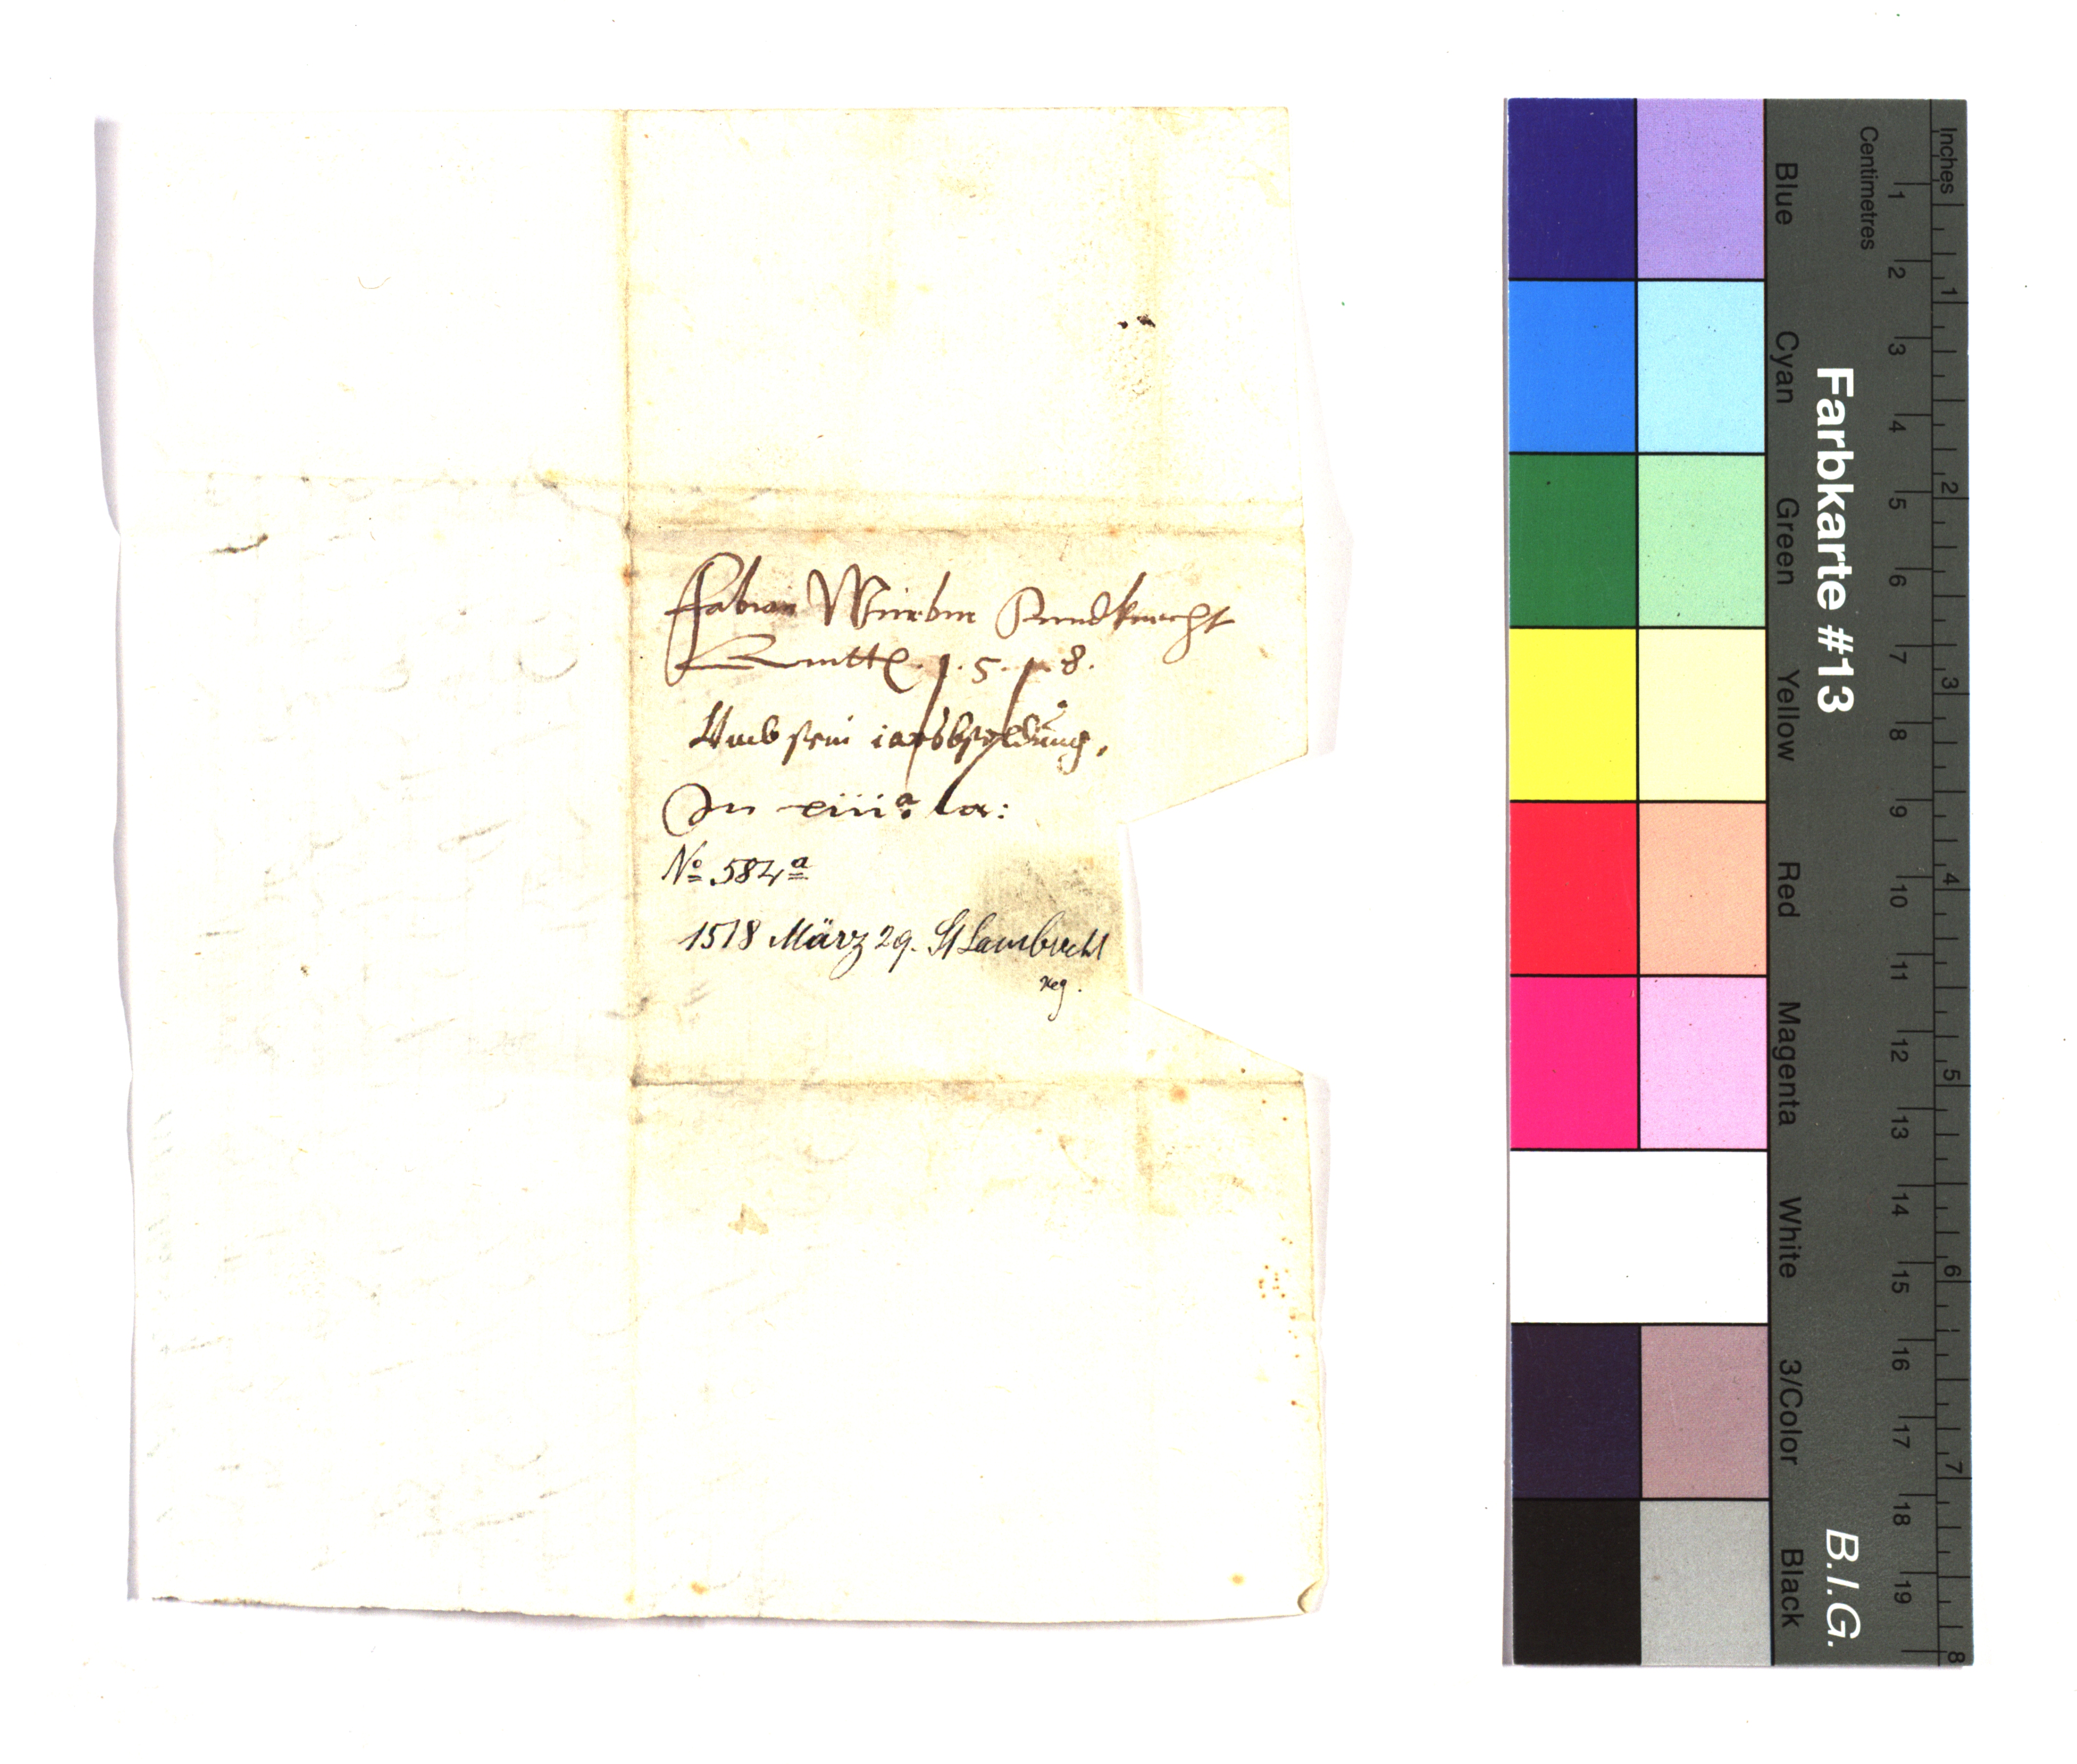 Fabian Würbm Lanndknecht
Quittg. 1.5.1.8.
Umb sein iarsbsoldung,
In xiii:a la:
No 584a
1518 März 29. St Lambrecht
reg.
Inches
Centimetres
Farbkarte #13
B.I.G.
Blue
Cyan
Green
Yellow
Red
Magenta
White
3/Color
Black
1 2 3 4 5 6 7 8 9 10 11 12 13 14 15 16 17 18 19
1 2 3 4 5 6 7 8